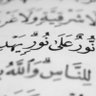 شَرْقِيَّةٍ وَلَا
نُّورٌ عَلَىٰ نُورٍ يَهْدِ
لِلنَّاسِ وَاللَّهُ